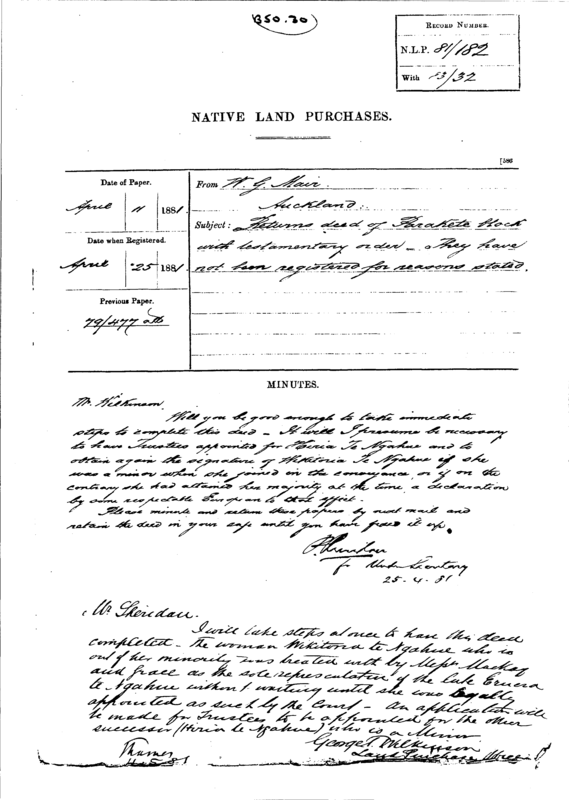 350.30
RECORD NUMBER.
N.L.P. 81/182
With 13/32
NATIVE LAND PURCHASES.
[586
Date of Paper.
April 11 1881.
From W. G. Mair.
Auckland.
Subject: Returns deed of Parakete block
Date when Registered.
with testamentary order – They have
April 25 1881
not been registered for reasons stated.
Previous Paper.
79/477 atta
MINUTES.
Mr. Wilkinson.
Will you be good enough to take immediate
steps to complete this deed – It will I presume be necessary
to have Trustees appointed for Hiria Te Ngahue and to
obtain again the signature of Wikitoria Te Ngahue if she
was a minor when she joined in the conveyance or if on the
contrary she had attained her majority at the time a declaration
by some respectable European to that effect.
Please minute and return these papers by next mail and
retain the deed in your safe until you have fixed it up.
P. Sheridan
for Under Secretary
25-4-81
Mr Sheridan.
I will take steps at once to have this deed
completed – the woman Wikitoria te Ngahue who is
out of her minority was treated with by Messrs Mackay
and Grace as the sole representative of the late Eruera
te Ngahue without waiting until she was legally
appointed as such by the Court – An application will
be made for Trustees to be appointed for the other
successor (Hiria te Ngahue) who is a Minor
George T. Wilkinson
Thames
4-5-81
Land Purchase Officer